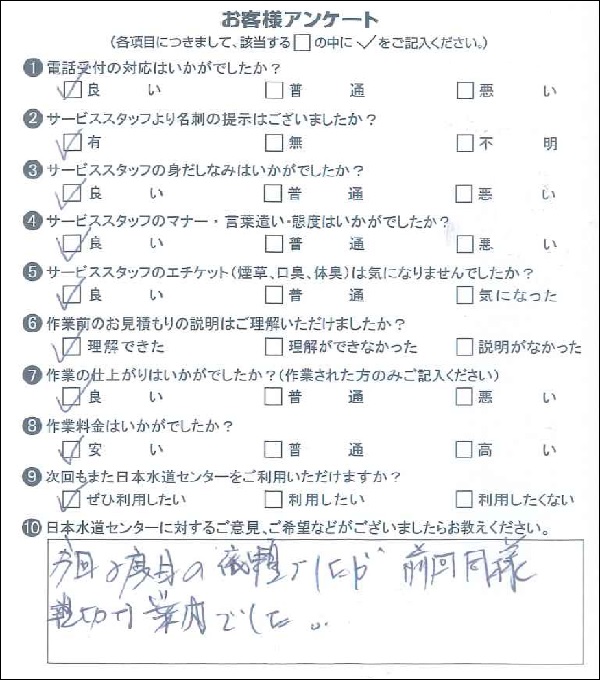 お客様アンケート
(各項目につきまして、該当する□の中に✓をご記入ください。)
❶電話受付の対応はいかがでしたか?
☑良い □普通 □悪い
❷サービススタッフより名刺の提示はございましたか?
☑有 □無 □不明
❸サービススタッフの身だしなみはいかがでしたか?
☑良い □普通 □悪い
❹サービススタッフのマナー・言葉遣い・態度はいかがでしたか?
☑良い □普通 □悪い
❺サービススタッフのエチケット(煙草、口臭、体臭)は気になりませんでしたか?
☑良い □普通 □気になった
❻作業前のお見積もりの説明はご理解いただけましたか?
☑理解できた □理解ができなかった □説明がなかった
❼作業の仕上がりはいかがでしたか?(作業された方のみご記入ください)
☑良い □普通 □悪い
❽作業料金はいかがでしたか?
☑安い □普通 □高い
❾次回もまた日本水道センターをご利用いただけますか?
☑ぜひ利用したい □利用したい □利用したくない
❿日本水道センターに対するご意見、ご希望などがございましたらお教えください。
今回 の 依頼でしたが 前回同様
親切 でした